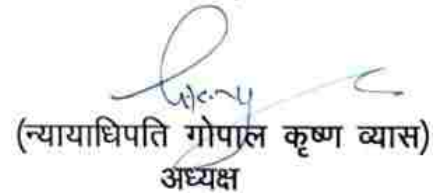 (न्यायाधिपति गोपाल कृष्ण व्यास)
अध्यक्ष